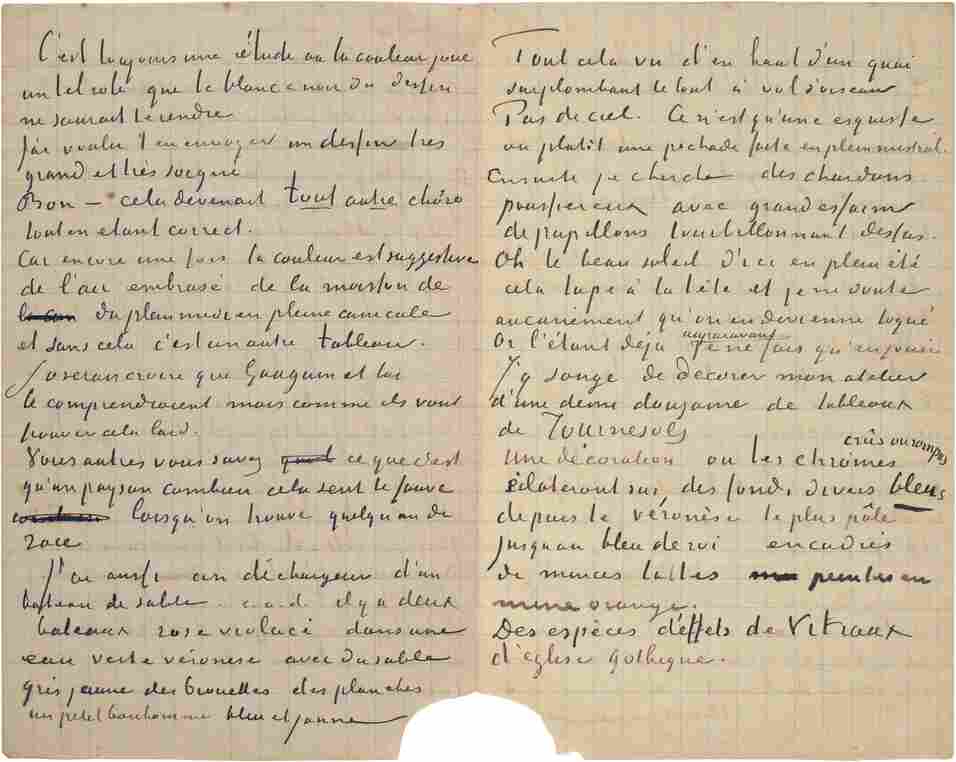 C'est toujours une étude où la couleur joue
un tel role que le blanc & noir du dessin
ne saurait le rendre.
J'ai voulu t'en envoyer un dessin très
grand et très soigné
Bon – cela devenait tout autre chose
tout en etant correct.
Car encore une fois la couleur est suggestive
de l'air embrasé de la moisson de
du plein midi en pleine canicule
et sans cela c'est un autre tableau.
J'oserais croire que Gauguin et toi
le comprendraient mais comme ils vont
trouver cela laid.
Vous autres vous savez ce que c'est
qu'un paysan combien cela sent le fauve
lorsqu'on trouve quelqu'un de
race
J'ai aussi un déchargeur d'un
bateau de sable. c.a.d. il y a deux
bateaux rose violacé dans une
eau verte véronèse avec du sable
gris jaune des brouettes des planches
un petit bonhomme bleu et jaune
Tout cela vu d'en haut d'un quai
surplombant le tout à vol d'oiseau
Pas de ciel. Ce n'est qu'une esquisse
ou plutôt une pochade faite en plein mistral.
Ensuite je cherche des chardons
poussiereux avec grand essaim
de papillons tourbillonnant dessus.
Oh le beau soleil d'ici en plein été
cela tape à la tête et je ne doute
aucunement qu'on en devienne toqué
Or l'étant déjà auparavant je ne fais qu'en jouir
J'y songe de décorer mon atelier
d'une demi douzaine de tableaux
de Tournesols
Une décoration où les chromes crûs ou rompus
éclateront sur des fonds divers bleus
depuis le véronèse le plus pâle
jusqu'au bleu de roi encadrés
de minces lattes peintes en
mine orange.
Des espèces d'effets de vitraux
d'église gothique.